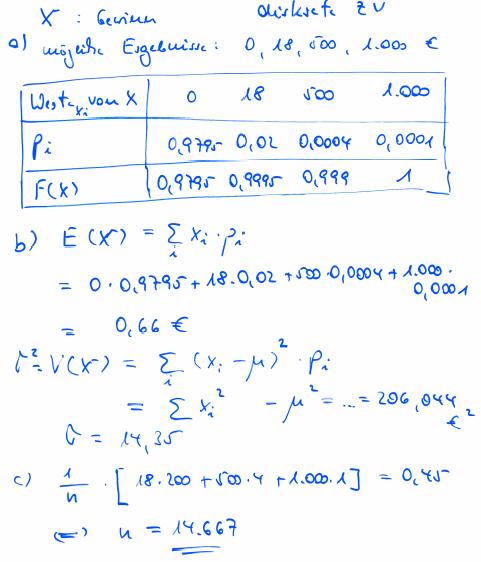 X : Gewinn diskrete ZV
a) mögliche Ergebnisse: 0, 18, 500, 1.000 €
Werte xi von X 0 18 500 1.000
Pi 0,9795 0,02 0,0004 0,0001
F(X) 0,9795 0,9995 0,999 1
b) E(X) = ∑i xi · pi
= 0 · 0,9795 + 18 · 0,02 + 500 · 0,0004 + 1.000 ·
0,0001
= 0,66 €
σ² = V(X) = ∑i (xi - μ)² · pi
= ∑ xi² - μ² = ... = 206,044 €²
σ = 14,35
c) 1/n · [18·200 + 500·4 + 1.000·1] = 0,45
⇔ n = 14.667